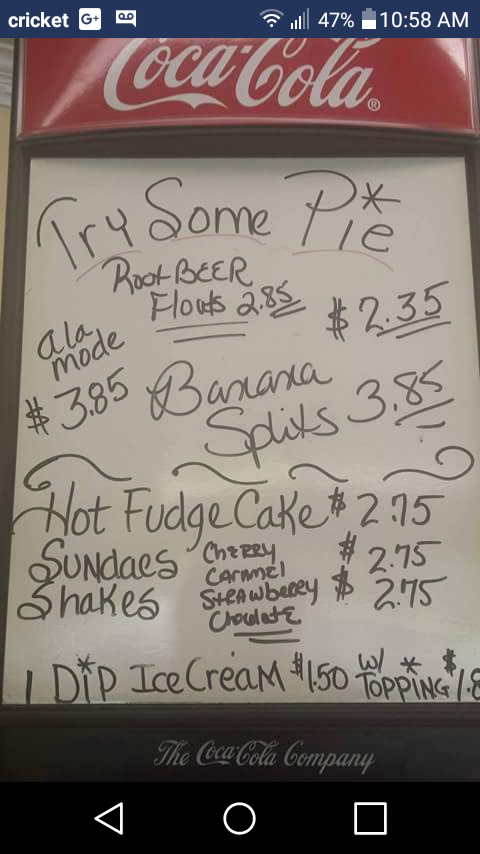 cricket G+ 47% 10:58 AM
Coca-Cola®
Try Some Pie*
Root BEER
Floats 2.85 $2.35
a la
mode
$3.85 Banana
Splits 3.85
Hot Fudge Cake $2.75
Sundaes Cherry $2.75
Caramel
Shakes Strawberry $2.75
Choclate
1 Dip Ice Cream $1.50 w/ * TOPPING $1.8
The Coca-Cola Company